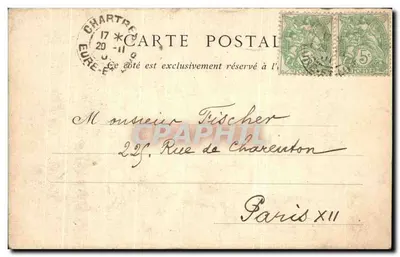 CHARTRES
17 *
20 -11
EURE-E
CARTE POSTAL
Ce côté est exclusivement réservé à l'
5
Monsieur Fischer
CPARAMA
225 Rue de Charenton
Paris XII